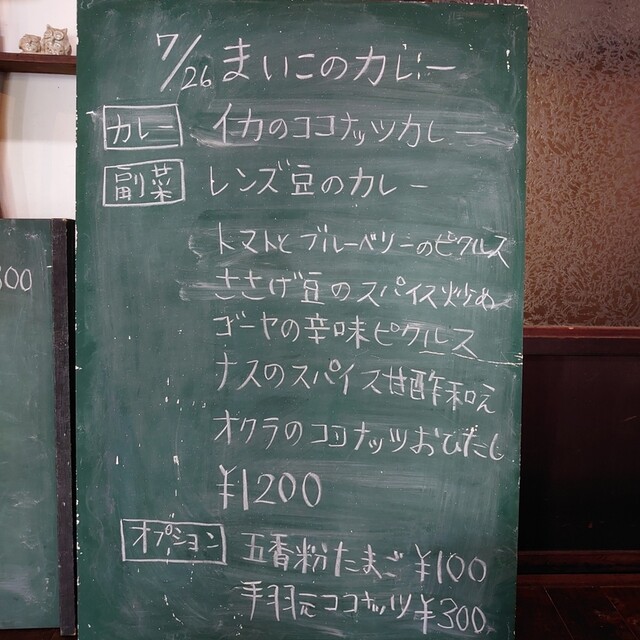 7/26 まいこのカレー
カレー イカのココナッツカレー
副菜 レンズ豆のカレー
トマトとブルーベリーのピクルス
ささげ豆のスパイス炒め
ゴーヤの辛味ピクルス
ナスのスパイス甘酢和え
オクラのココナッツおひたし
¥1200
オプション 五香粉たまご ¥100
手羽元ココナッツ ¥300